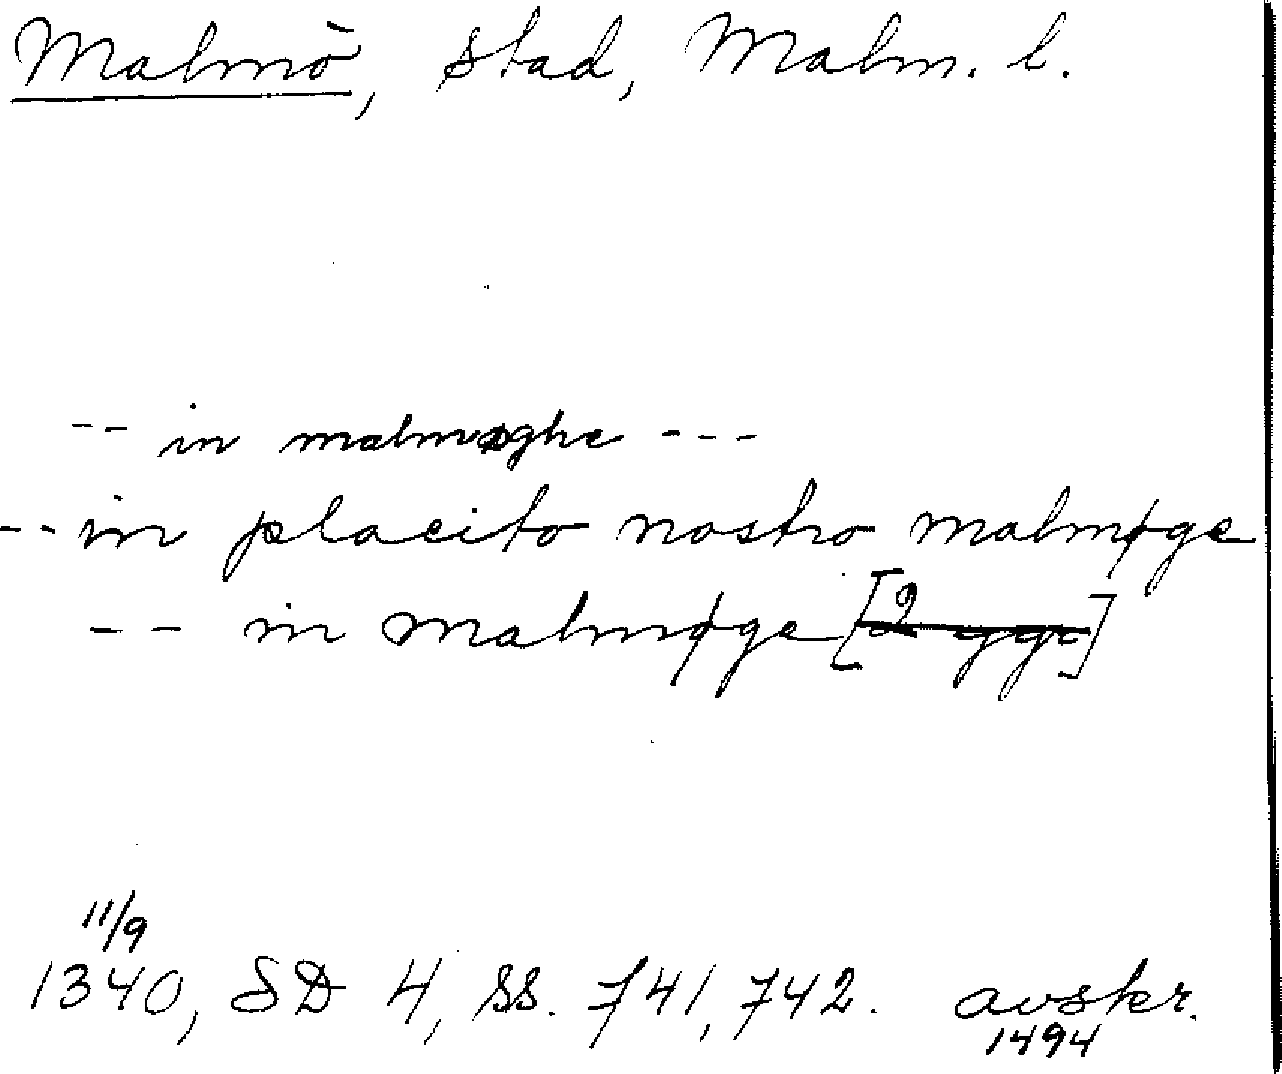 Malmö, stad, Malm. l.
-- in malmøghe ---
-- in placito nostro malmøge
-- in malmøge [2 ggr]
11/9
1340, SD 4, ss. 741, 742. avskr.
1494